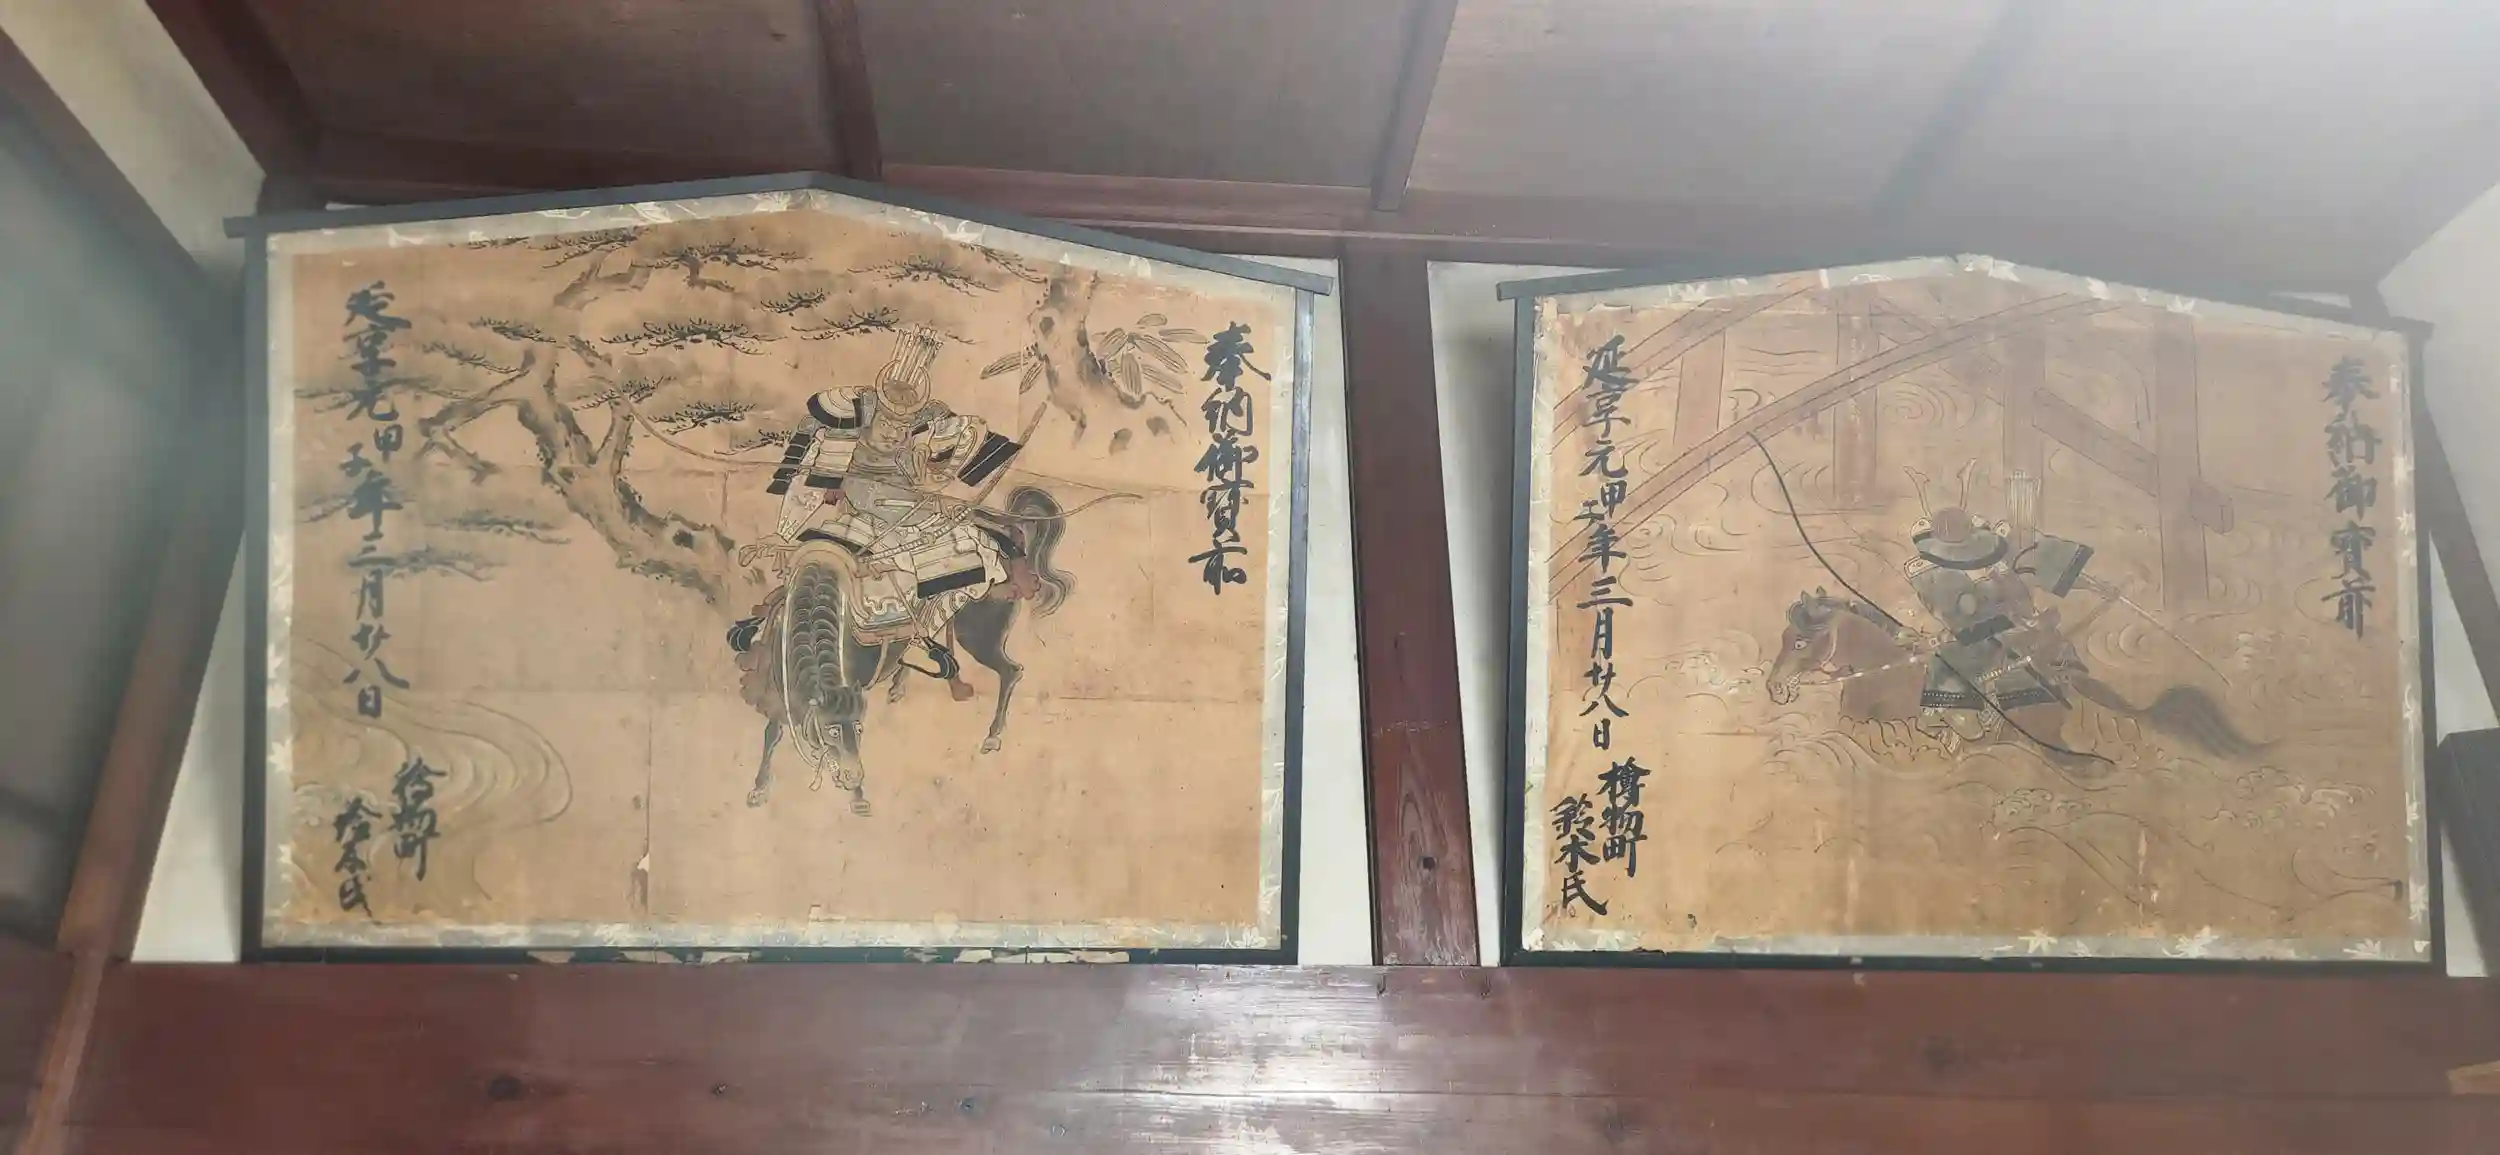 奉納御寳前
延享元甲子年三月廿八日
檜物町
鈴木氏
奉納御寳前
延享元甲子年三月廿八日
檜物町
鈴木氏